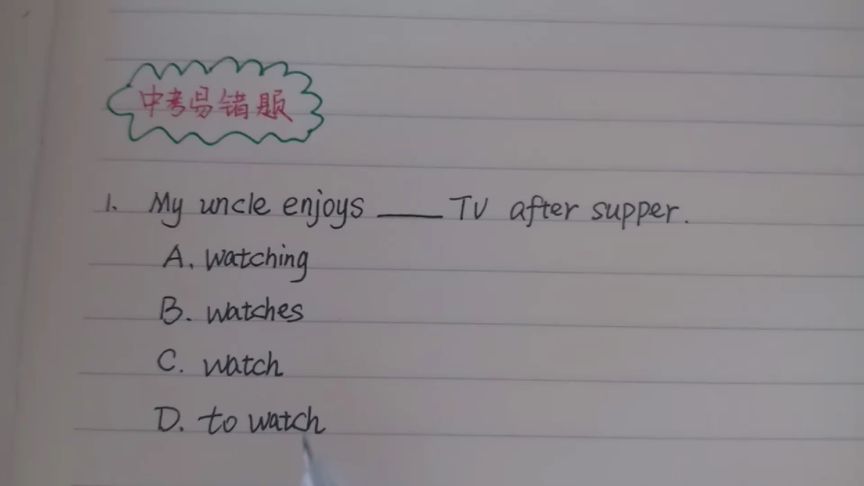 中考易错题
1. My uncle enjoys ____ TV after supper.
A. watching
B. watches
C. watch
D. to watch